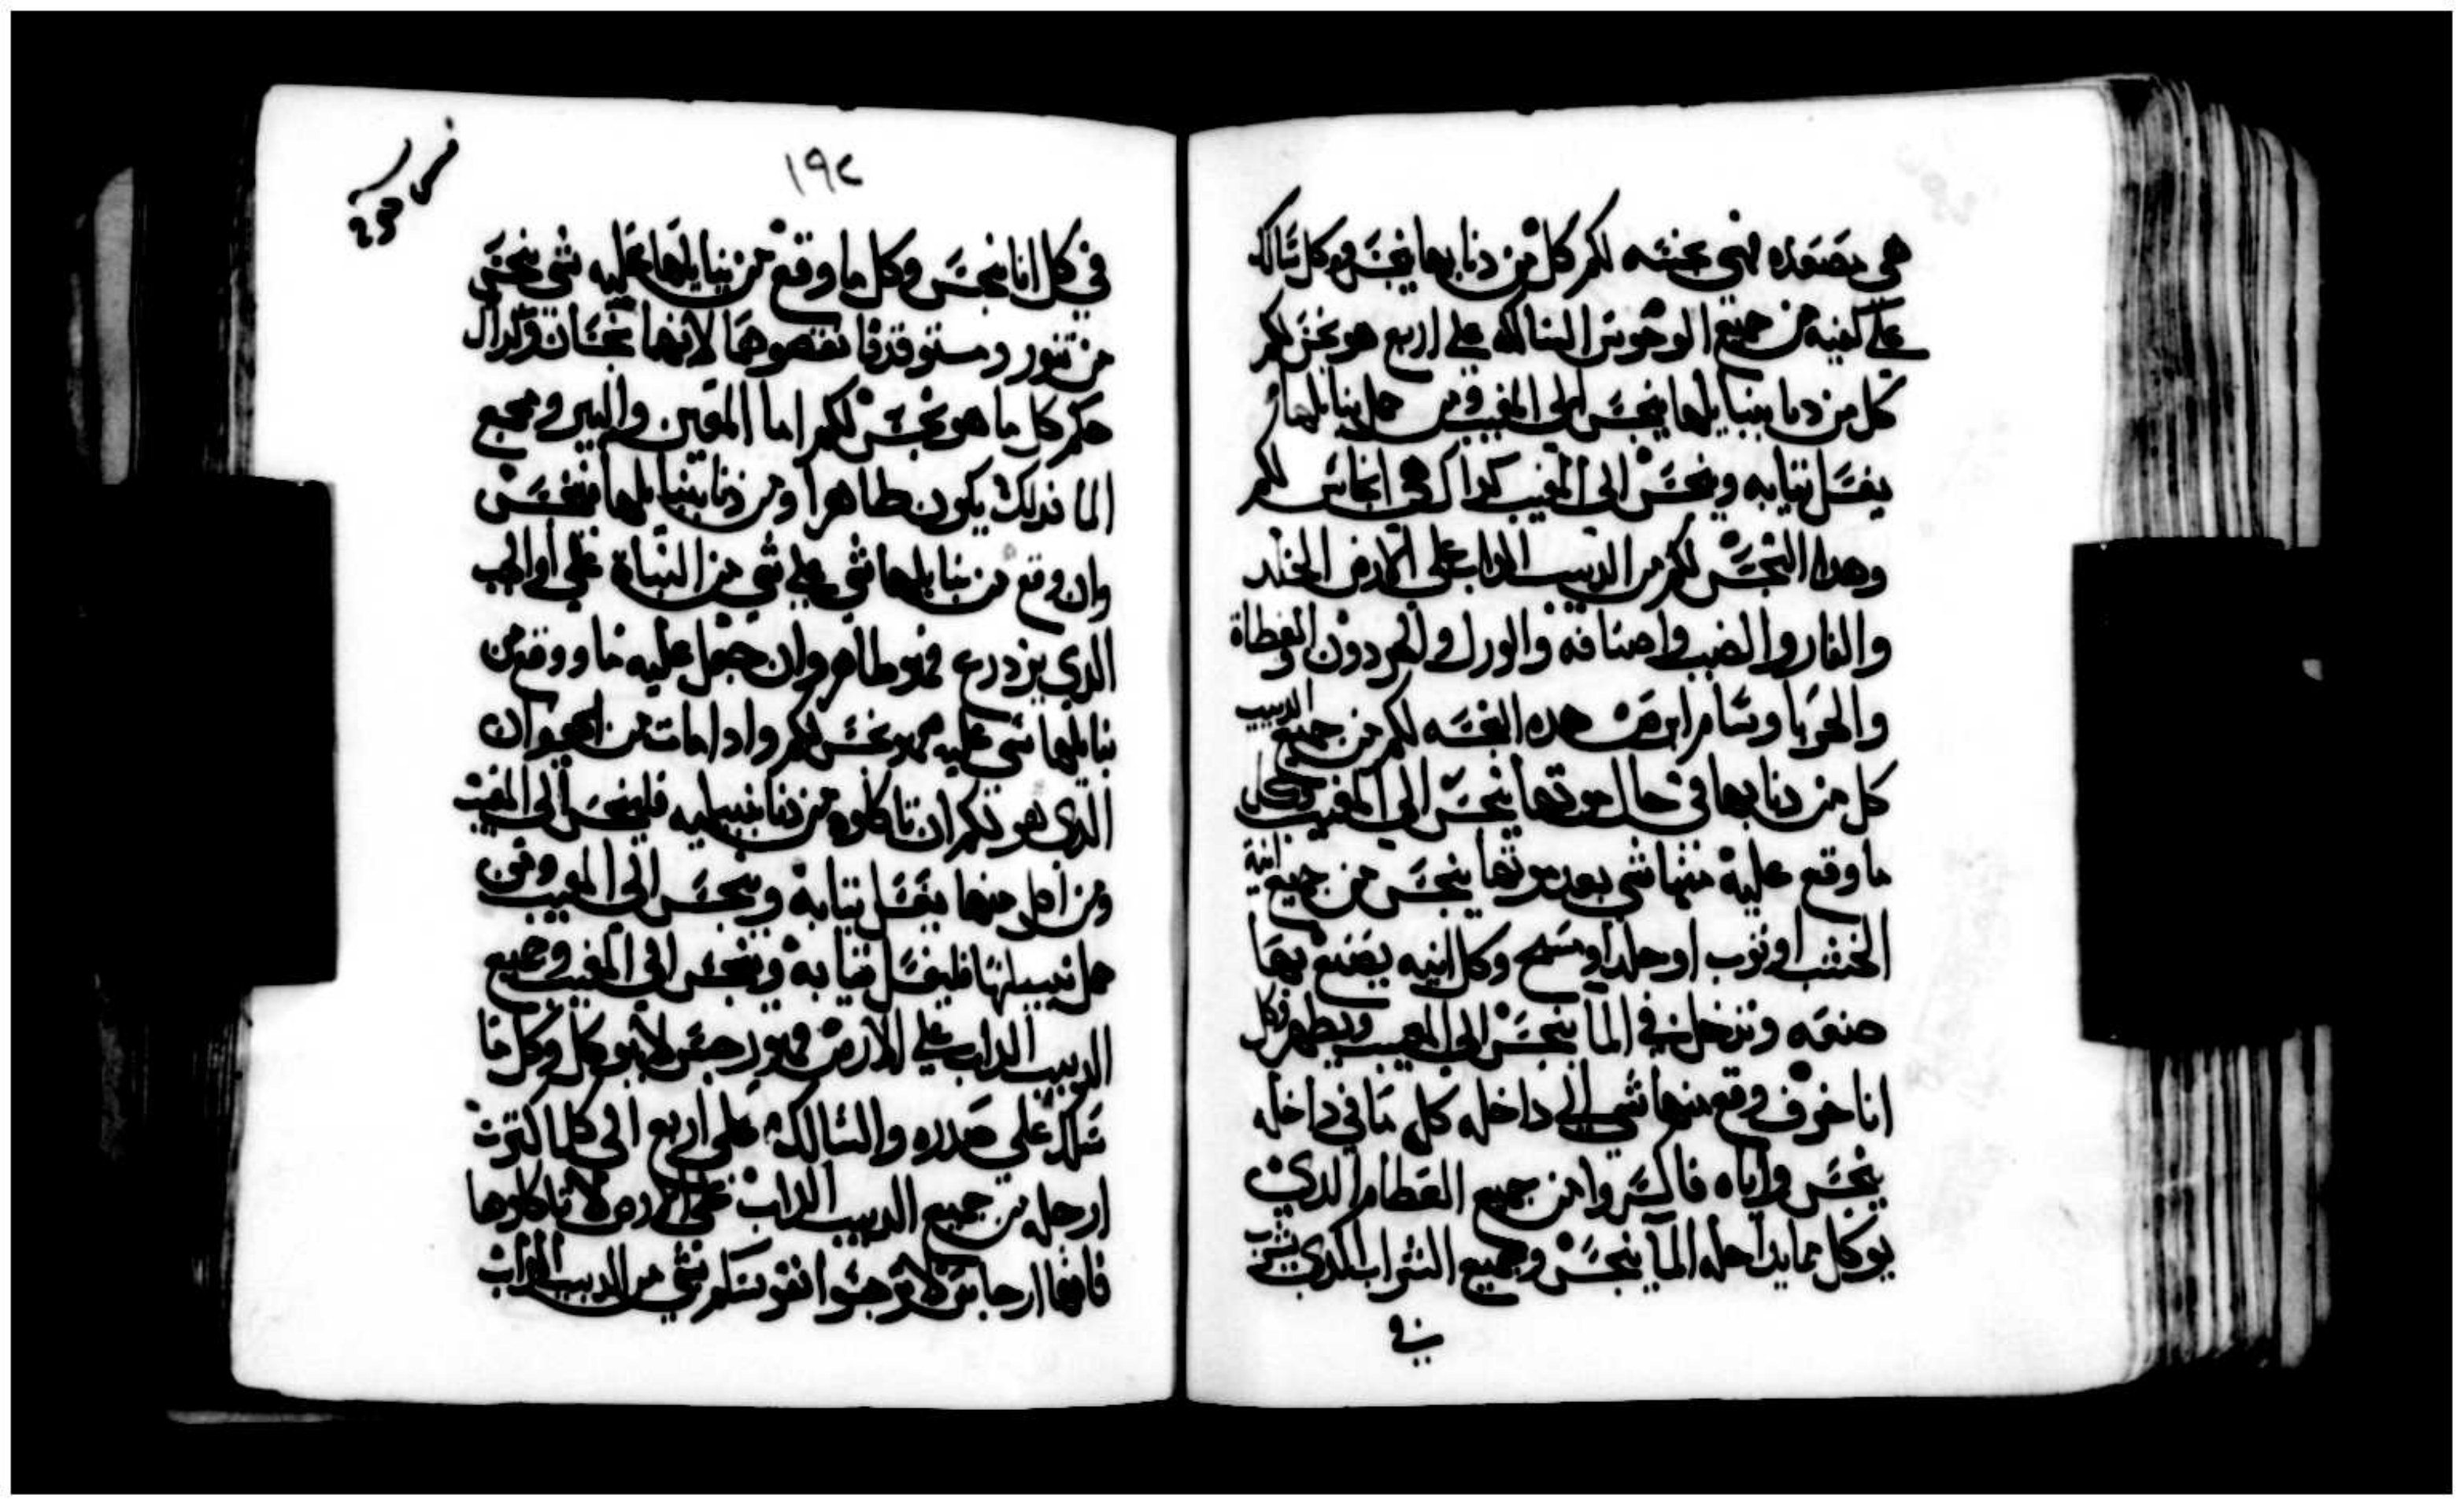 هي مصعده فهي نجسه لكم كل من دنا بها ينجس وكل سالك
على كفيه من جميع الوحوش السالكه على اربع هو نجس لكم
كل من دنا بنبايلها ينجس الى المغيب ومن حمل نبايلها
يغسل تيابه وينجس الى المغيب كداك هي انجاس لكم
وهدا النجس لكم من الدبيب الداب على الارض الخلد
والفار والضب واصنافه والورل والحردون والعظاة
والحربا وسام ابرص هده النجسه لكم من جميع الدبيب
كل من دنا بها في حال موتها ينجس الى المغيب وكل
ما وقع عليه منها شي بعد موتها ينجس من جميع انية
الخشب او توب او جلد او مسح وكل انيه يصنع بها
صنعه وتدخل في الما ينجس الى المغيب ويطهر وكل
انا خزف وقع منها شي الى داخله كل ما في داخله
ينجس واياه فاكسروا من جميع الطعام الدي
يوكل مما يداخله الما ينجس وجميع الشراب الدي يشرب
في
١٩٢
في كل انا ينجس وكل ما وقع من نبايلها عليه شي ينجس
من تنور ومستوقد فانقضوها لانها نجسان وكداك
حكم كل ما هو نجس لكم اما المعين والبير ومجمع
الما فدلك يكون طاهرا ومن دنا بنبايلها فينجس
وان وقع من نبايلها شي على شي من النباة على او الحب
الدي يزدرع فهو طاهر وان جعل عليه ما ووقع من
نبايلها شي عليه فهو نجس لكم وادا مات من الحيوان
الدي هو لكم ان تاكلوه من دنا بنبيلته فلينجس الى المغيب
ومن اكل منها يغسل تيابه وينجس الى المغيب ومن
حمل نبيلتها فليغسل تيابه وينجس الى المغيب وجميع
الدبيب الداب على الارض فهو رجس لا يوكل وكل ما
سلك على صدره والسالك على اربع الى كلما كترت
ارجله من جميع الدبيب الداب على الارض لا تاكلوها
فانها ارجاس لا ترجسوا نفوسكم بشي من الدبيب الداب